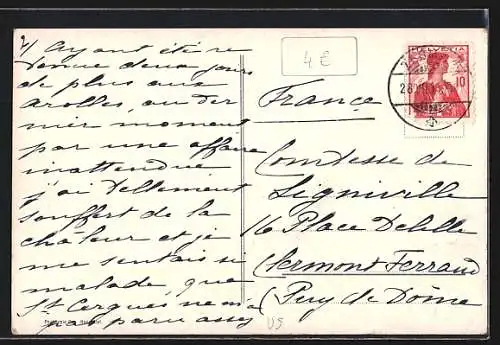 2/ Ayant été re
tenue deux jours
de plus aux
arolles, au der
nier moment
par une affaire
inattendue
j'ai tellement
souffert de la
chaleur et je
me sentais si
malade, que
St. Cergues ne m'a
pas paru assez
4 €
HELVETIA
10
France
Comtesse de
Ligniville
16 Place Delille
Clermont Ferrand
Puy de Dôme
US